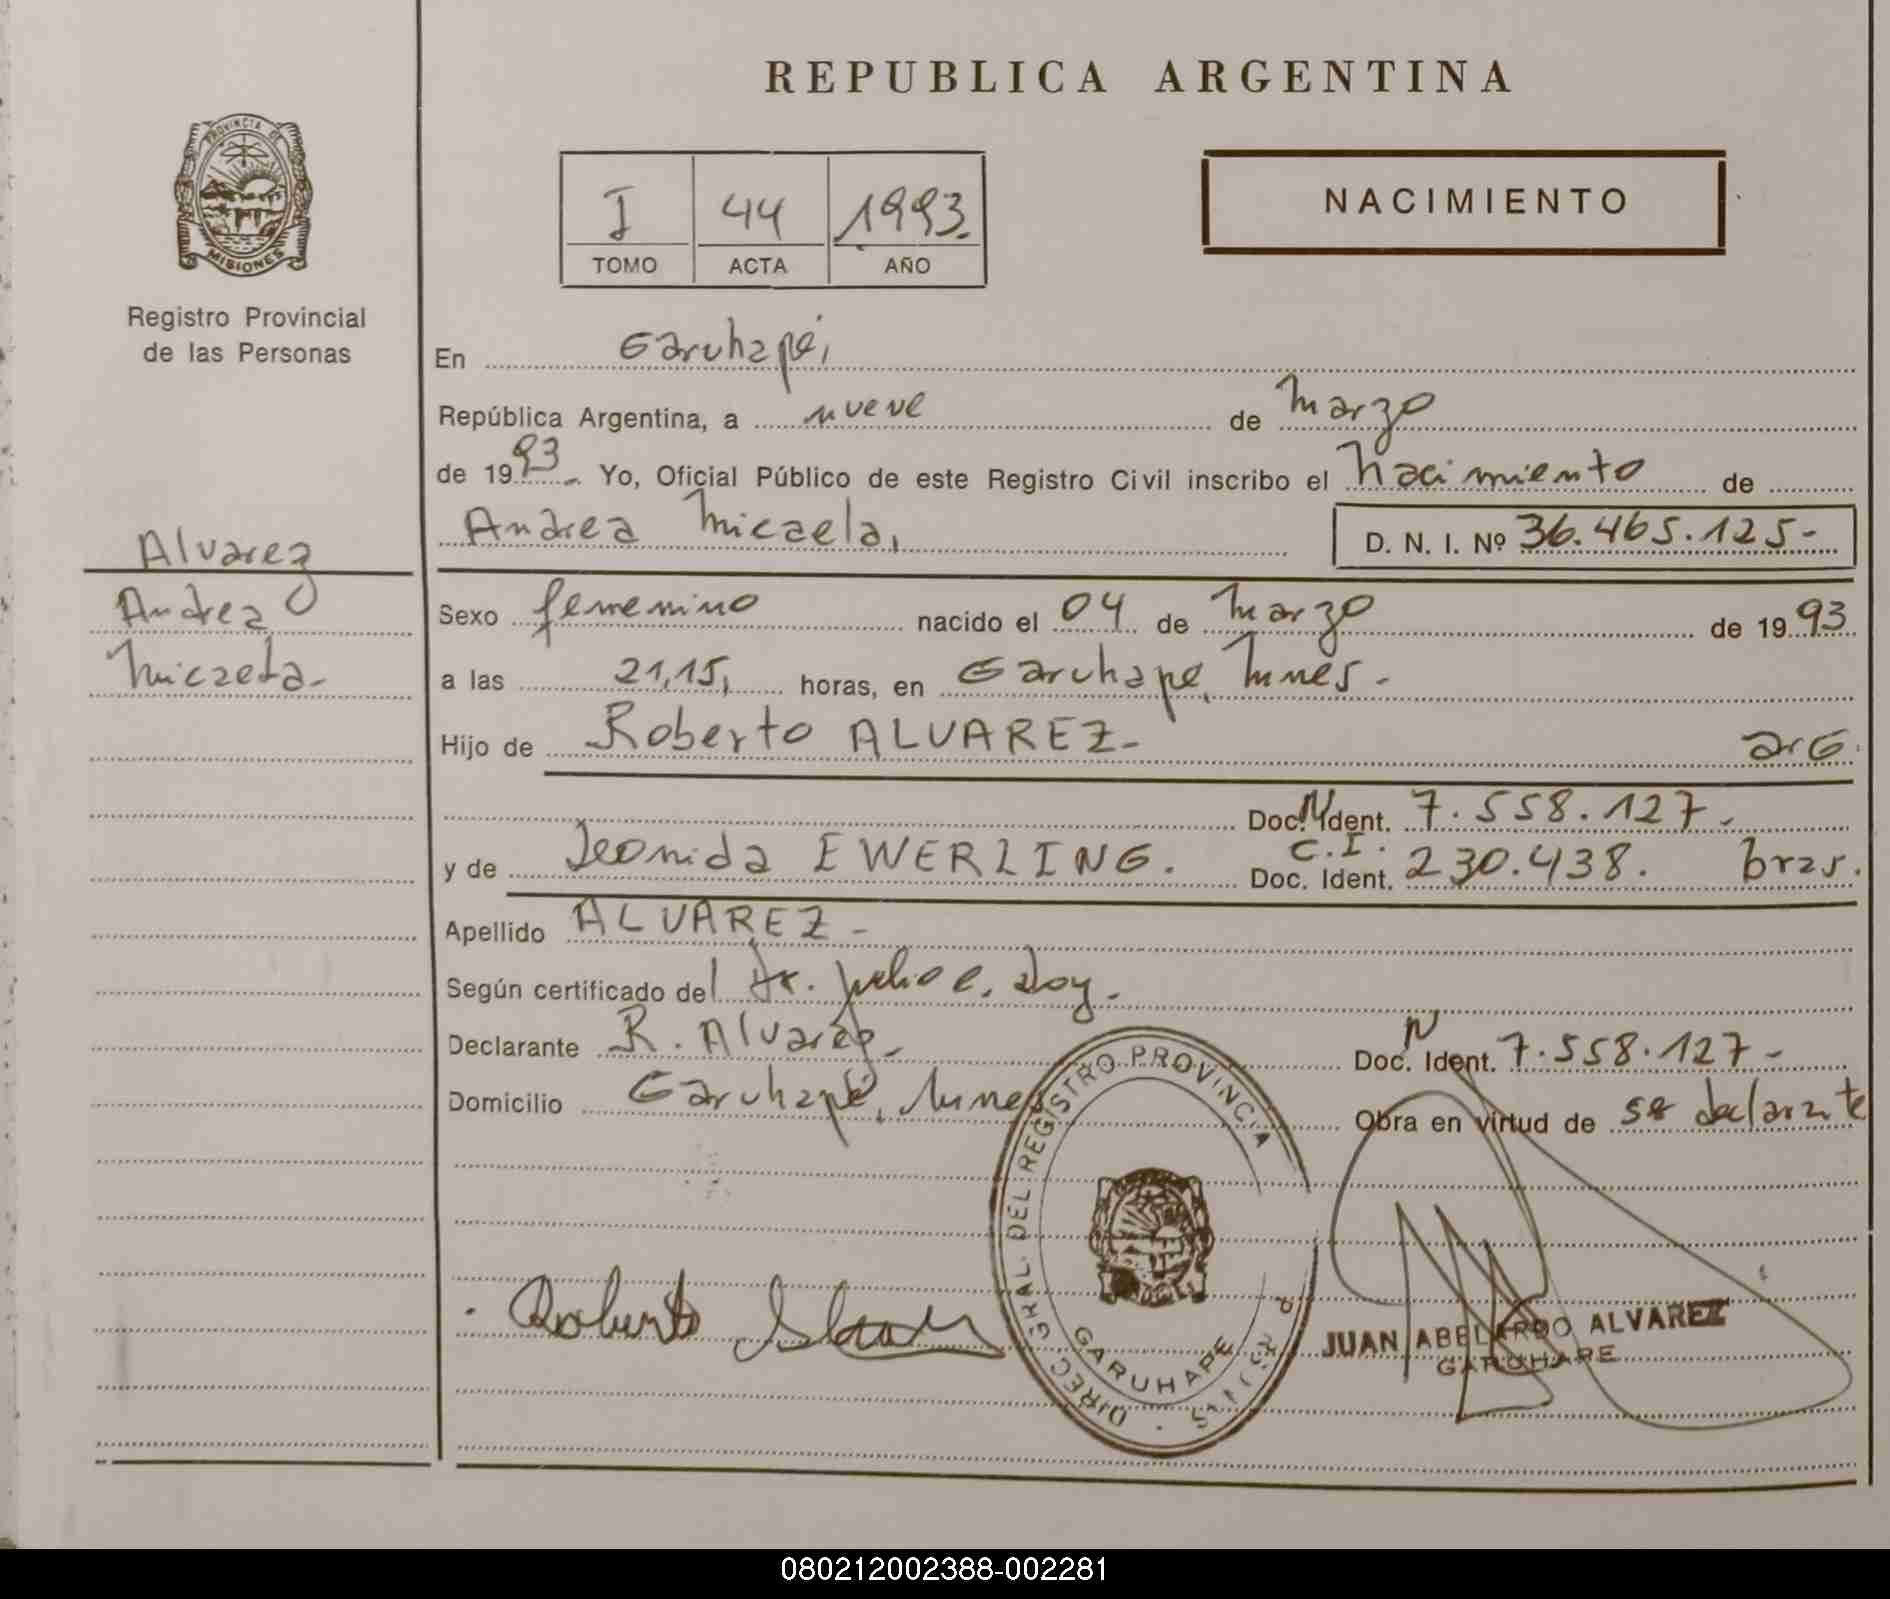 REPUBLICA ARGENTINA
PROVINCIA DE
MISIONES
Registro Provincial
de las Personas
I 44 1993.
TOMO ACTA AÑO
NACIMIENTO
En Garuhapé,
República Argentina, a nueve de Marzo
de 1993. Yo, Oficial Público de este Registro Civil inscribo el Nacimiento de
Andrea Micaela, D. N. I. Nº 36.465.125-
Alvarez
Andrea
Micaela-
Sexo femenino nacido el 04 de Marzo de 1993
a las 21,15, horas, en Garuhape,
Hijo de Roberto ALVAREZ- arG.
Doc. Ident. 7.558.127-
y de Leonida EWERLING. C.I. Doc. Ident. 230.438. bras.
Apellido ALVAREZ-
Según certificado del Dr. Julio
Declarante R. Alvarez- Doc. Ident. 7.558.127-
Domicilio Garuhapé, Obra en virtud de ser declarante
Roberto
DIREC. GRAL. DEL REGISTRO PROVINCIA
GARUHAPE
JUAN ABELARDO ALVAREZ
GARUHAPE
080212002388-002281